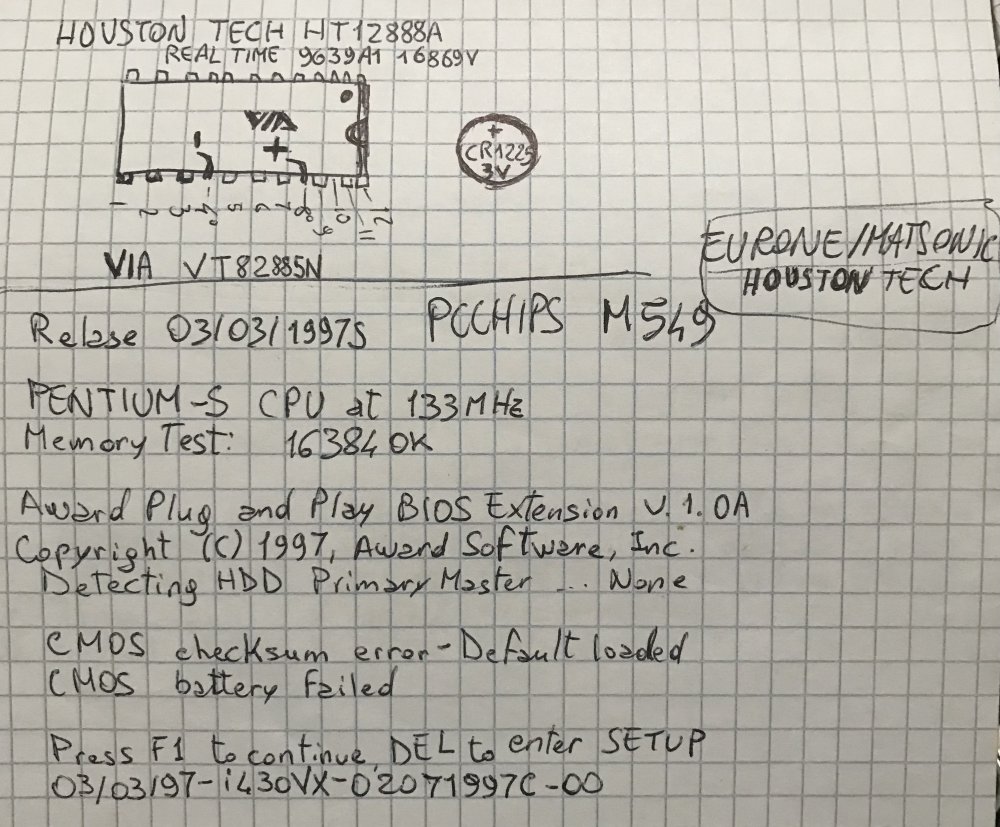 HOUSTON TECH HT12888A
REAL TIME 9639A1 16869V
VIA
+
-
+
CR1225
3V
1 2 3 4 5 6 7 8 9 10 11 12
VIA VT82885N
EURONE/MATSONIC
HOUSTON TECH
PCCHIPS M549
Relase 03/03/1997S
PENTIUM-S CPU at 133MHz
Memory Test: 16384 OK
Award Plug and Play BIOS Extension V.1.0A
Copyright (C) 1997, Award Software, Inc.
Detecting HDD Primary Master ... None
CMOS checksum error - Default loaded
CMOS battery failed
Press F1 to continue, DEL to enter SETUP
03/03/97-i430VX-02071997C-00